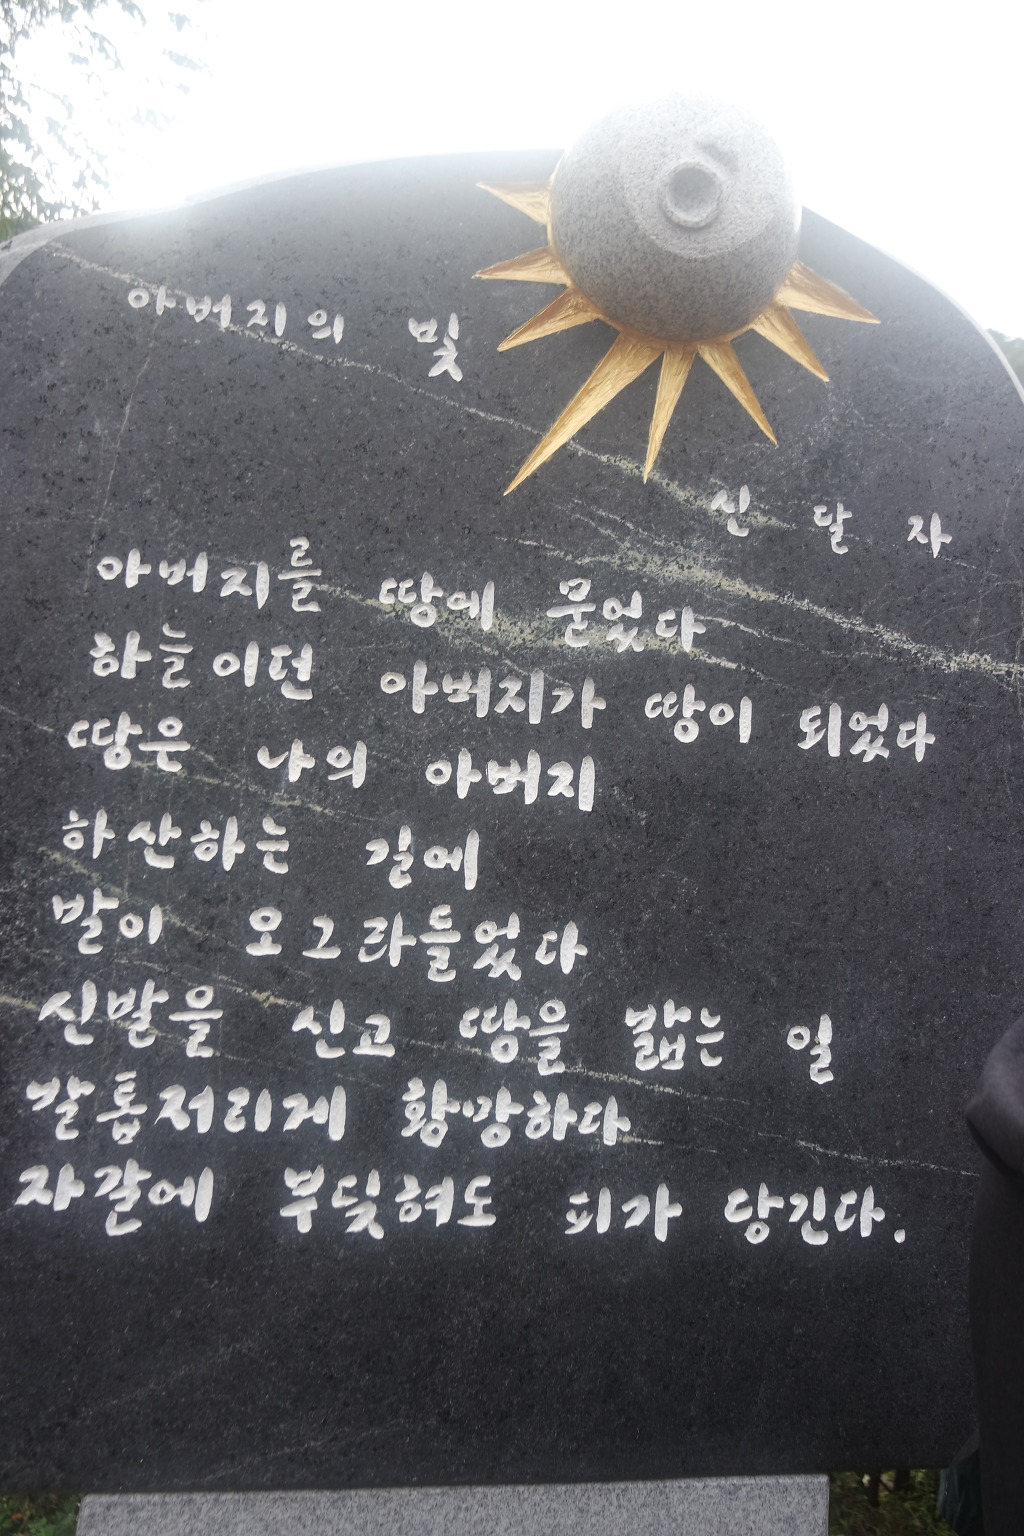 아버지의 빛
신달자
아버지를 땅에 묻었다
하늘이던 아버지가 땅이 되었다
땅은 나의 아버지
하산하는 길에
발이 오그라들었다
신발을 신고 땅을 밟는 일
발톱저리게 황망하다
자갈에 부딪혀도 피가 당긴다.